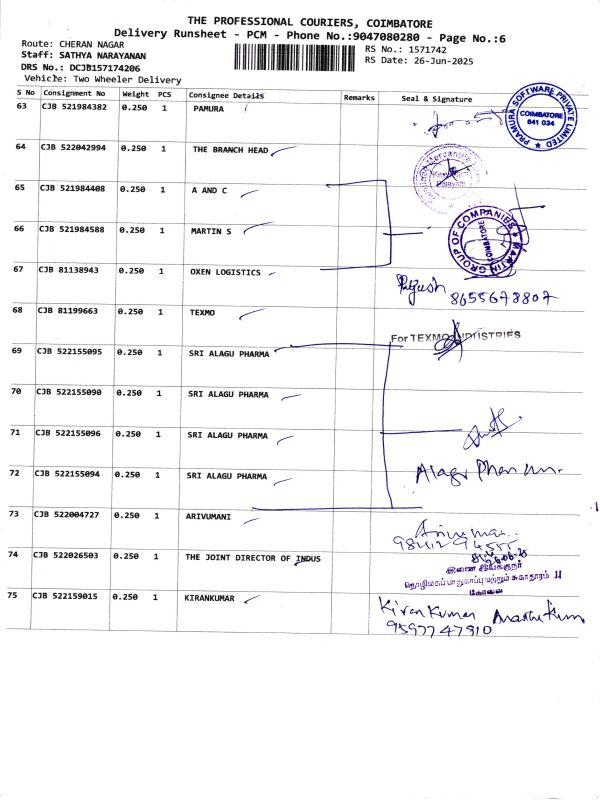 THE PROFESSIONAL COURIERS, COIMBATORE
Delivery Runsheet - PCM - Phone No.:9047080280 - Page No.:6
Route: CHERAN NAGAR
RS No.: 1571742
Staff: SATHYA NARAYANAN
RS Date: 26-Jun-2025
DRS No.: DCJB157174206
Vehicle: Two Wheeler Delivery
S No Consignment No Weight PCS Consignee Details Remarks Seal & Signature
63 CJB 521984382 0.250 1 PAMURA
PRAMURA SOFTWARE PRIVATE LIMITED
COIMBATORE
641 034
64 CJB 522042994 0.250 1 THE BRANCH HEAD
65 CJB 521984408 0.250 1 A AND C
66 CJB 521984588 0.250 1 MARTIN S
MARTIN GROUP OF COMPANIES
COIMBATORE
67 CJB 81138943 0.250 1 OXEN LOGISTICS
8655678807
68 CJB 81199663 0.250 1 TEXMO
For TEXMO INDUSTRIES
69 CJB 522155095 0.250 1 SRI ALAGU PHARMA
70 CJB 522155090 0.250 1 SRI ALAGU PHARMA
71 CJB 522155096 0.250 1 SRI ALAGU PHARMA
72 CJB 522155094 0.250 1 SRI ALAGU PHARMA
73 CJB 522004727 0.250 1 ARIVUMANI
74 CJB 522026503 0.250 1 THE JOINT DIRECTOR OF INDUS
இணை இயக்குநர்
தொழிலகப் பாதுகாப்பு மற்றும் சுகாதாரம் II
கோவை
75 CJB 522159015 0.250 1 KIRANKUMAR
Kiran Kumar
9597747910